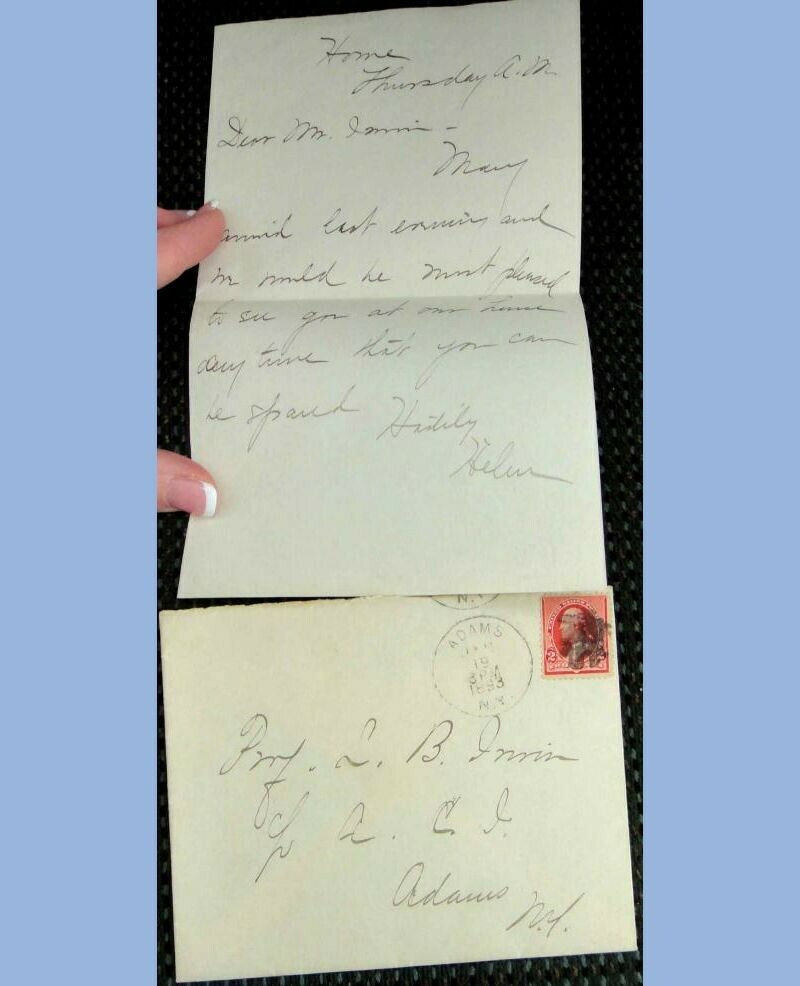 Home
Thursday A.M.
Dear Mr. Irwin -
Mary
arrived last evening and
we would be most pleased
to see you at our house
any time that you can
be spared Hastily
Helen
N.Y.
ADAMS
JAN
19
3PM
1893
N.Y.
2 2
Prof. L. B. Irwin
c/o A. C. I.
Adams
N.Y.